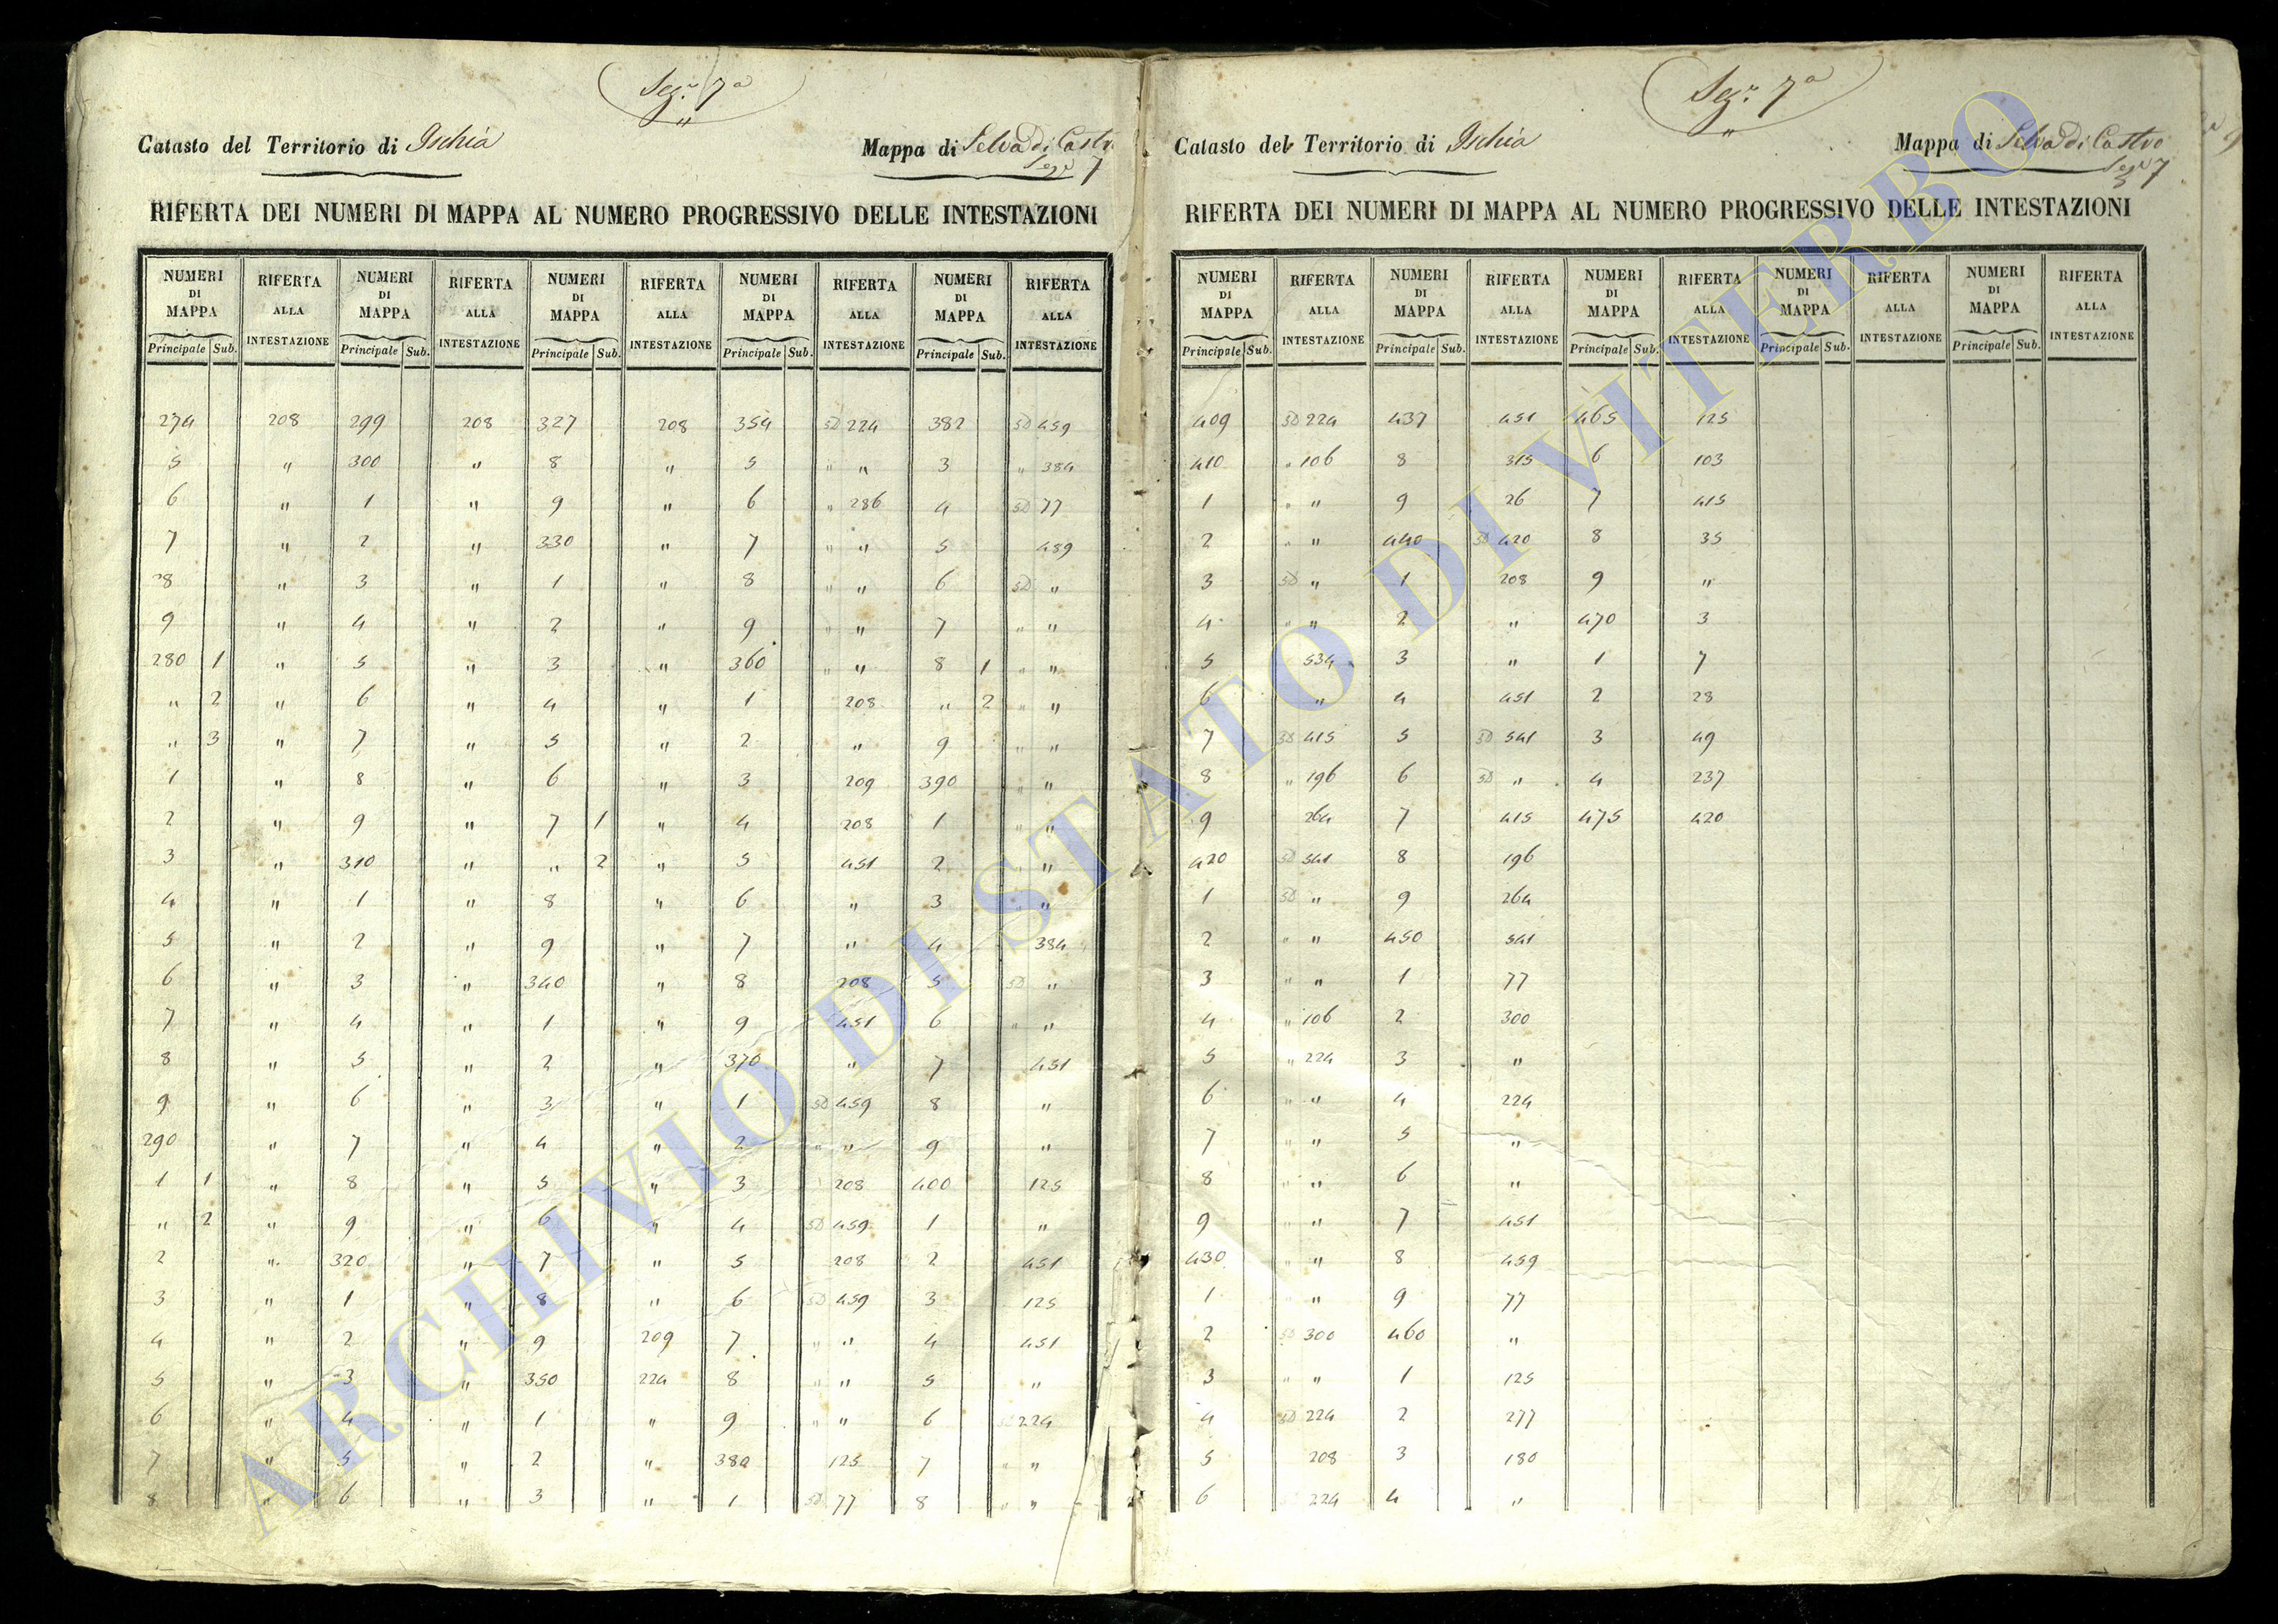 Segr. 7a
Catasto del Territorio di Ischia Mappa di Selva di Castro
Segr. 7
RIFERTA DEI NUMERI DI MAPPA AL NUMERO PROGRESSIVO DELLE INTESTAZIONI
NUMERI DI MAPPA RIFERTA ALLA INTESTAZIONE NUMERI DI MAPPA RIFERTA ALLA INTESTAZIONE NUMERI DI MAPPA RIFERTA ALLA INTESTAZIONE NUMERI DI MAPPA RIFERTA ALLA INTESTAZIONE NUMERI DI MAPPA RIFERTA ALLA INTESTAZIONE
Principale Sub. Principale Sub. Principale Sub. Principale Sub. Principale Sub.
274 208 299 208 327 208 354 50 224 382 50 459
5 " 300 " 8 " 5 " " 3 " 384
6 " 1 " 9 " 6 " 286 4 50 77
7 " 2 " 330 " 7 " " 5 489
8 " 3 " 1 " 8 " " 6 50 "
9 " 4 " 2 " 9 " " 7 " "
280 1 " 5 " 3 " 360 " " 8 1 " "
" 2 " 6 " 4 " 1 208 " 2 " "
" 3 " 7 " 5 " 2 " 9 " "
1 " 8 " 6 " 3 209 390 " "
2 " 9 " 7 1 " 4 208 1 " "
3 " 310 " " 2 " 5 451 2 " "
4 " 1 " 8 " 6 " 3 " "
5 " 2 " 9 " 7 " 4 384
6 " 3 " 340 " 8 208 5 50 "
7 " 4 " 1 " 9 451 6 " "
8 " 5 " 2 " 370 " 7 451
9 " 6 " 3 " 1 50 459 8 "
290 " 7 " 4 " 2 " " 9 "
1 1 " 8 " 5 " 3 208 400 125
" 2 " 9 " 6 " 4 50 459 1 "
2 " 320 " 7 " 5 208 2 451
3 " 1 " 8 " 6 50 459 3 125
4 " 2 " 9 209 7 " " 4 451
5 " 3 " 350 224 8 " " 5 "
6 " 4 " 1 " 9 " " 6 224
7 " 5 " 2 " 380 125 7 " "
8 " 6 " 3 " 1 50 77 8 " "
Segr. 7a
Catasto del Territorio di Ischia Mappa di Selva di Castro
Segr. 7
RIFERTA DEI NUMERI DI MAPPA AL NUMERO PROGRESSIVO DELLE INTESTAZIONI
NUMERI DI MAPPA RIFERTA ALLA INTESTAZIONE NUMERI DI MAPPA RIFERTA ALLA INTESTAZIONE NUMERI DI MAPPA RIFERTA ALLA INTESTAZIONE NUMERI DI MAPPA RIFERTA ALLA INTESTAZIONE NUMERI DI MAPPA RIFERTA ALLA INTESTAZIONE
Principale Sub. Principale Sub. Principale Sub. Principale Sub. Principale Sub.
409 50 224 437 451 465 125
410 " 106 8 315 6 103
1 " " 9 26 7 415
2 " " 440 50 420 8 35
3 50 " 1 208 9 "
4 " " 2 " 470 3
5 534 3 " 1 7
6 " 4 451 2 28
7 50 415 5 50 541 3 49
8 " 196 6 50 " 4 237
9 264 7 415 475 420
420 50 541 8 196
1 50 " 9 264
2 " " 450 541
3 " " 1 77
4 " 106 2 300
5 " 224 3 "
6 " " 4 224
7 " " 5 "
8 " " 6 "
9 " " 7 451
430 " " 8 459
1 " 9 77
2 50 300 460 "
3 " " 1 125
4 50 224 2 277
5 208 3 180
6 224 4 "
ARCHIVIO DI STATO DI VITERBO